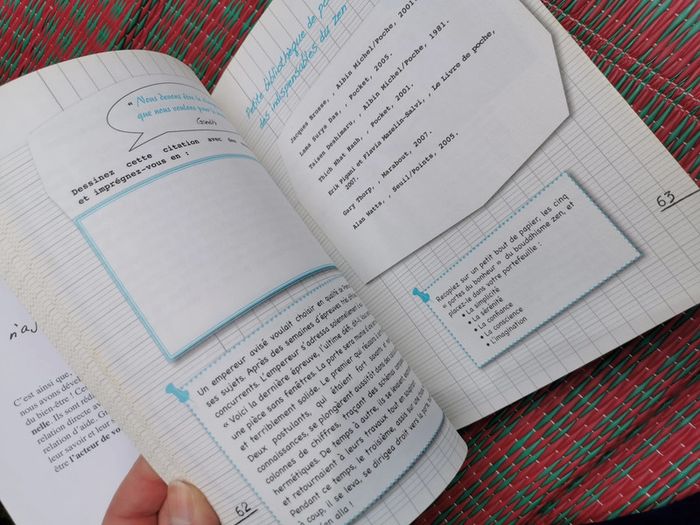 n'a
C'est ainsi que
nous avons dével
du bien-être ! Ces
nelle. Ils sont réd
relation directe av
relation d'aide. G
leur savoir et leur
être l'acteur de vo
" Nous devons être le
que nous voulons pour le
Gandhi
Dessinez cette citation avec des
et imprégnez-vous en :
Un empereur avisé voulait choisir en qualité de
ses sujets. Après des semaines d'épreuves
concurrents. L'empereur s'adressa solennellement
« Voici la dernière épreuve, l'ultime défi, dit-il
une pièce sans fenêtres. La porte sera munie d'un
et terriblement solide. Le premier qui réussira
Deux postulants, qui étaient fort savants
connaissances, se plongèrent aussitôt dans des
colonnes de chiffres, traçant des schémas
hermétiques. De temps à autre, ils se levaient
et retournaient à leurs travaux tout en
Pendant ce temps, le troisième, assis sur une
coup, il se leva, se dirigea droit vers la porte
en alla !
62
Petite bibliothèque de
des indispensables du zen
Jacques Brosse, , Albin Michel/Poche, 2001.
Lama Surya Das, , Pocket, 2005.
Taisen Deshimaru, , Albin Michel/Poche, 1981.
Thich Nhat Hanh, , Pocket, 2001.
Erik Pigani et Flavia Mazelin-Salvi, , Le Livre de poche,
2007.
Gary Thorp, , Marabout, 2007.
Alan Watts, , Seuil/Points, 2005.
63
Recopiez sur un petit bout de papier, les cinq
« portes du bonheur » du bouddhisme zen, et
placez-le dans votre portefeuille :
• La simplicité
• La sérénité
• La confiance
• La conscience
• L'imagination